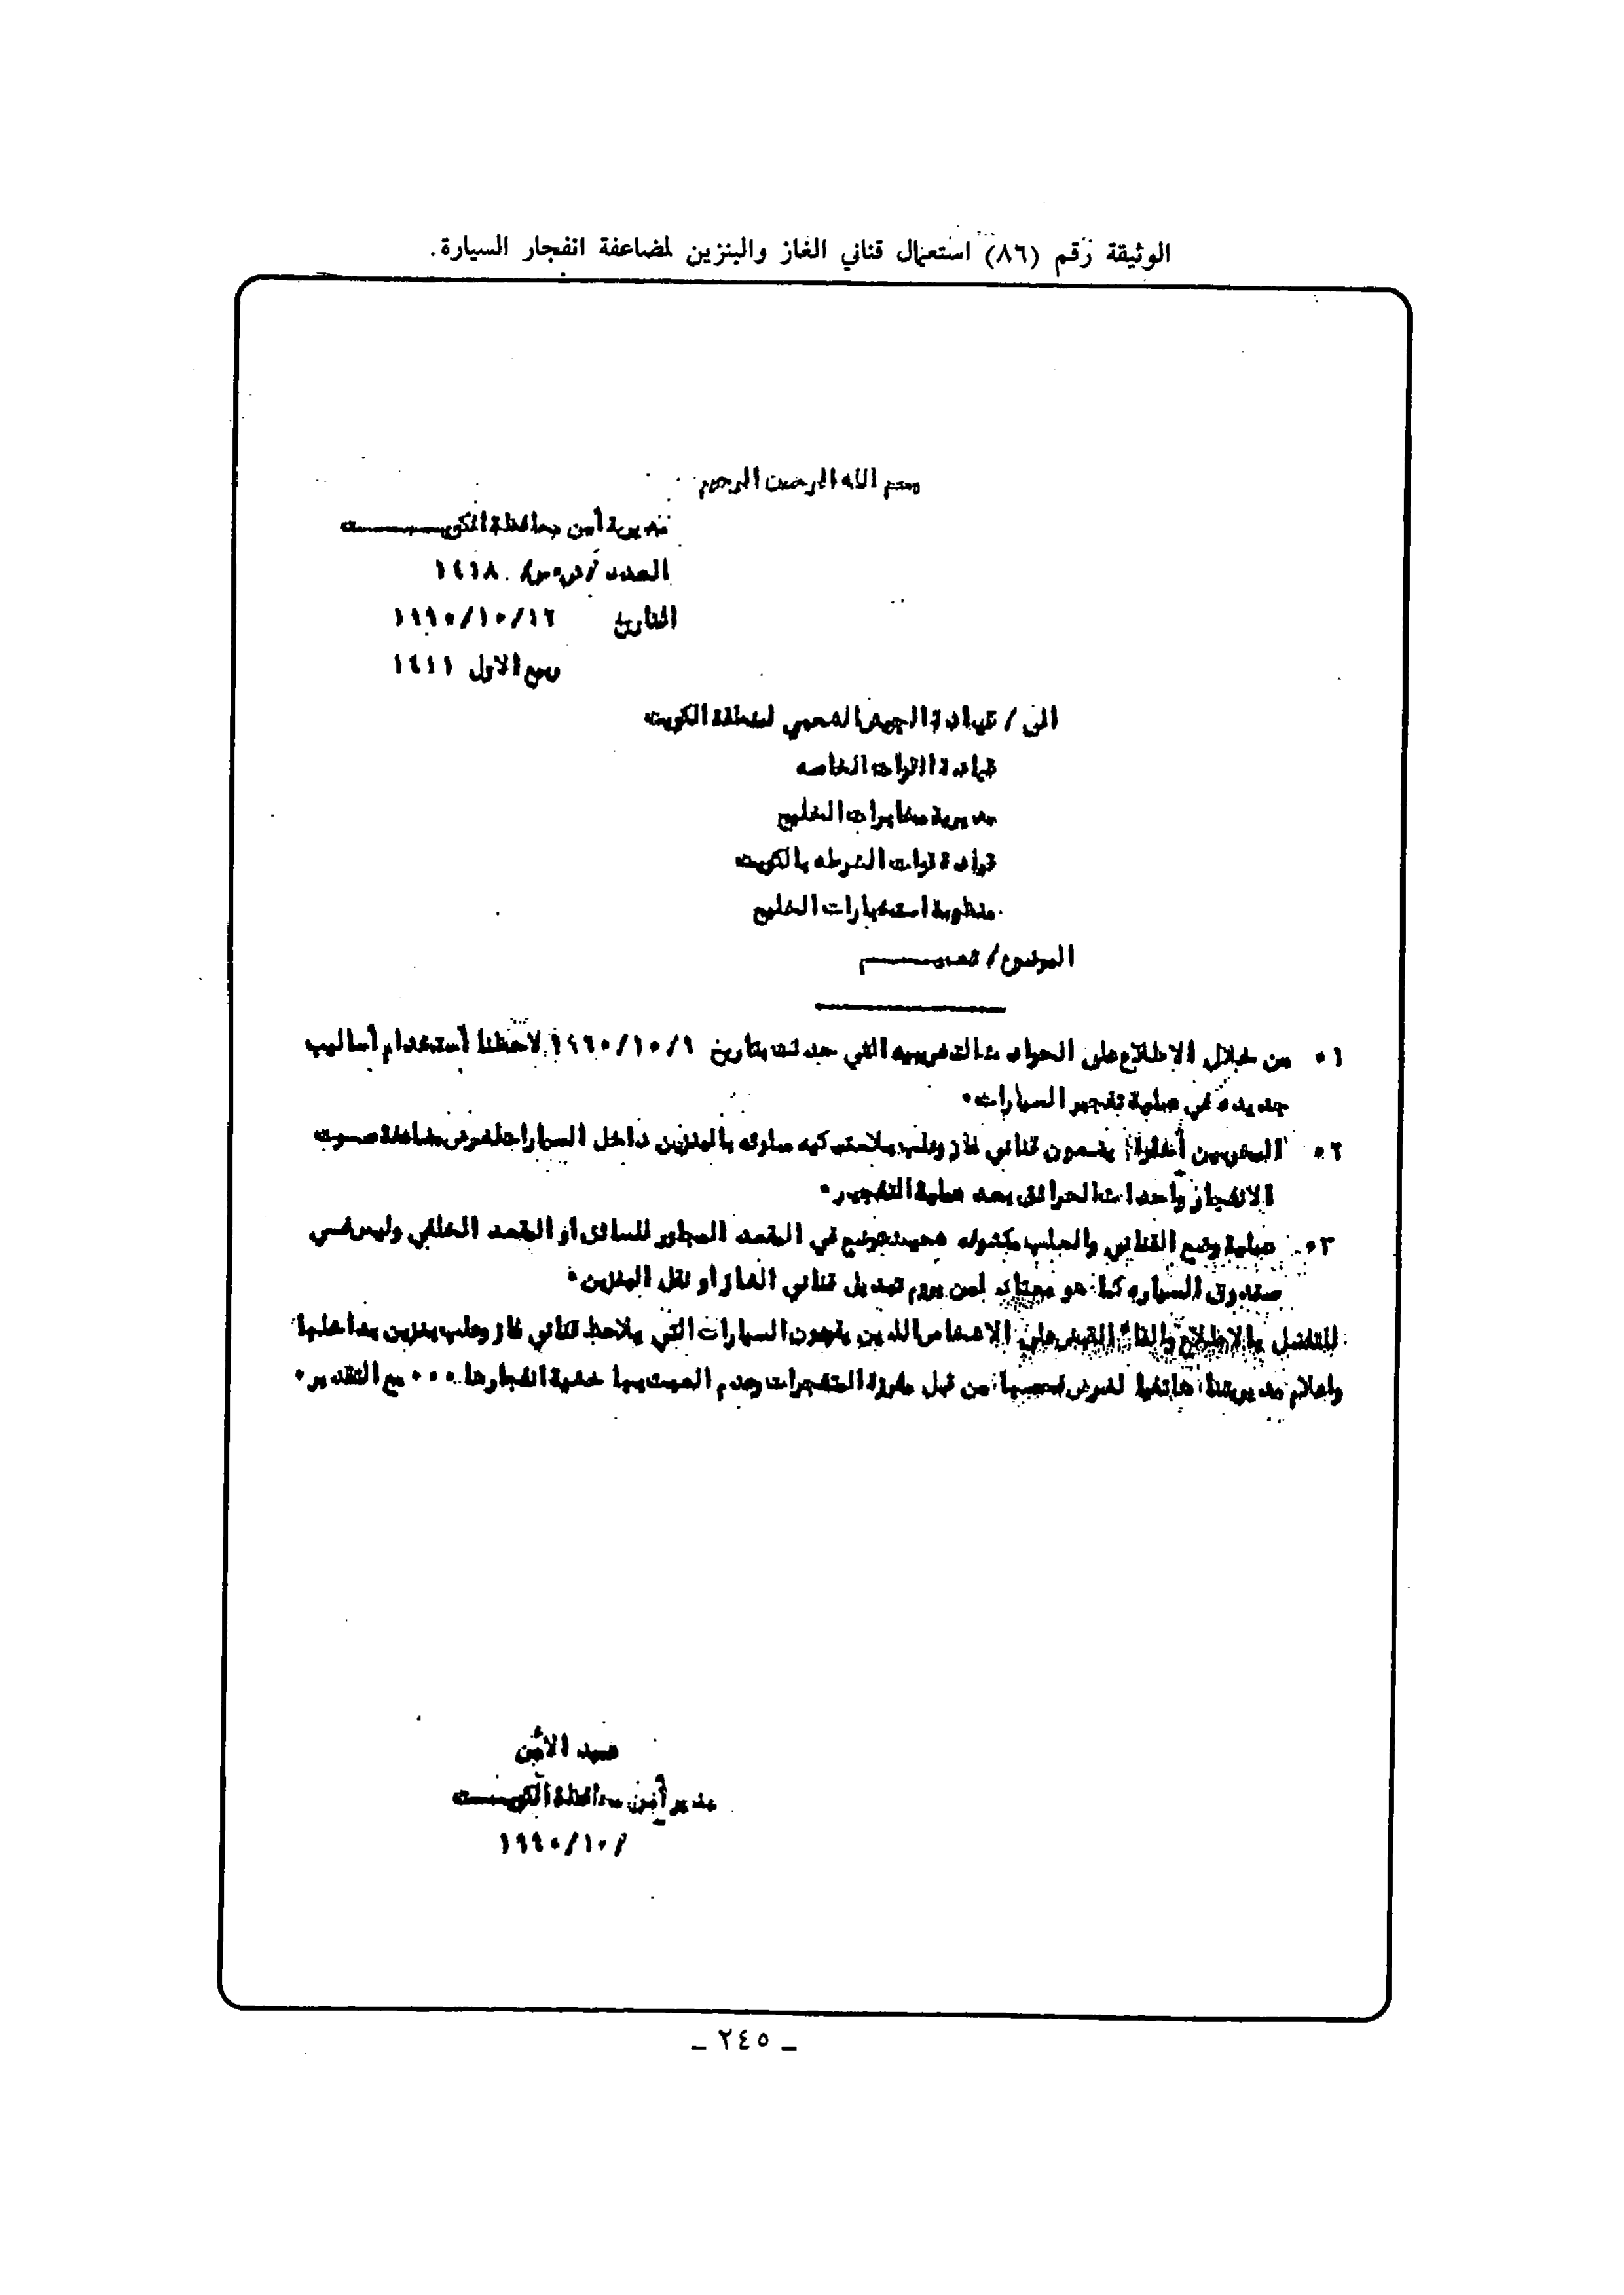 الوثيقة رقم (٨٦) استعمال قناني الغاز والبنزين لمضاعفة انفجار السيارة.
بسم الله الرحمن الرحيم
مديرية أمن محافظة الكويـــــــت
العدد / ١٤١٨
التاريخ ١٩٩٠/١٠/١٢
ربيع الاول ١٤١١
الى / قيادة الجيش الشعبي لمنطقة الكويت
قيادة القوات الخاصه
مديرية مخابرات الخليج
قيادة قوات الشرطه بالكويت
منظومة استخبارات الخليج
الموضوع / تعميـــــــم
١٠ من خلال الاطلاع على الحوادث التخريبيه التي حدثت بتاريخ ١٩٩٠/١٠/٩ لاحظنا أستخدام أساليب
جديده في عملية تفجير السيارات ٠
٢٠ المخربين أخذوا يضعون قناني غاز وعلب بلاستيكيه مملوئه بالبنزين داخل السيارات لغرض مضاعفة صوت
الانفجار وأحداث الحرائق بعد عملية التفجير ٠
٣٠ عملية وضع القناني والعلب مكشوفه بحيث توضع في المقعد المجاور للسائق أو المقعد الخلفي وليس فسي
صندوق السياره كما هو معتاد لمن يروم تبديل قناني الغاز او نقل البنزين ٠
للتفضل بالاطلاع والقاء القبض على الاشخاص اللذين يقودون السيارات التي يلاحظ قناني غاز وعلب بنزين بداخلها
واعلام مديريتنا هاتفيا لغرض فحصها من قبل مفرزة المتفجرات وعدم العبث بها خشية انفجارها ٠٠٠ مع التقدير ٠
عميد الامن
مدير أمن محافظة الكويـــت
/ ١٩٩٠/١٠
_ ٢٤٥ _